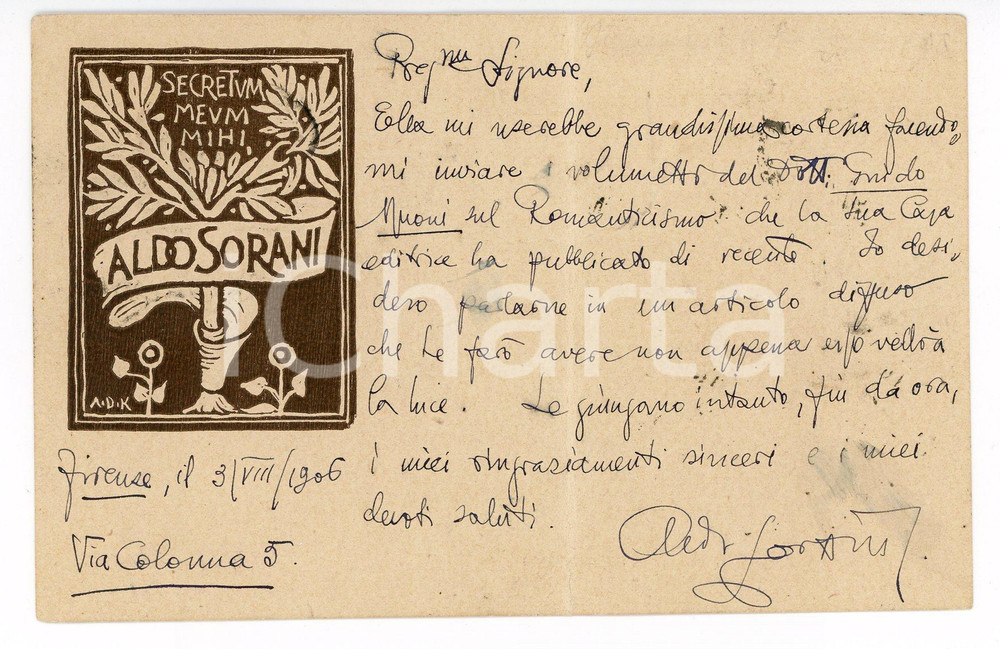 SECRETVM
MEVM
MIHI
ALDO SORANI
A·D·K
Firenze, il 3/VIII/1906
Via Colonna 5.
Preg.mo Signore,
Ella mi userebbe grandissima cortesia facendo„
mi inviare i volumetto del Dott. Guido
Muoni sul Romanticismo che la sua Casa
editrice ha pubblicato di recente. Io desi„
dero parlarne in un articolo diffuso
che Le farò avere non appena esso vedrà
la luce. Le giungano intanto, fin da ora,
i miei ringraziamenti sinceri e i miei
devoti saluti.
Aldo Sorani
iCharta